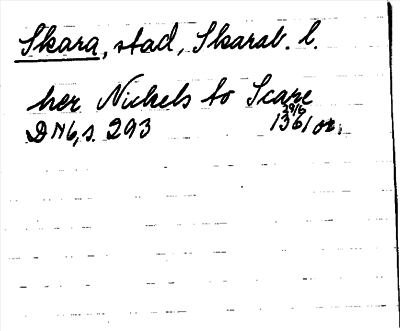 Skara, stad, Skarab. l.
her Nichels to Scare
29/6
DN6, s. 293 1361 or.